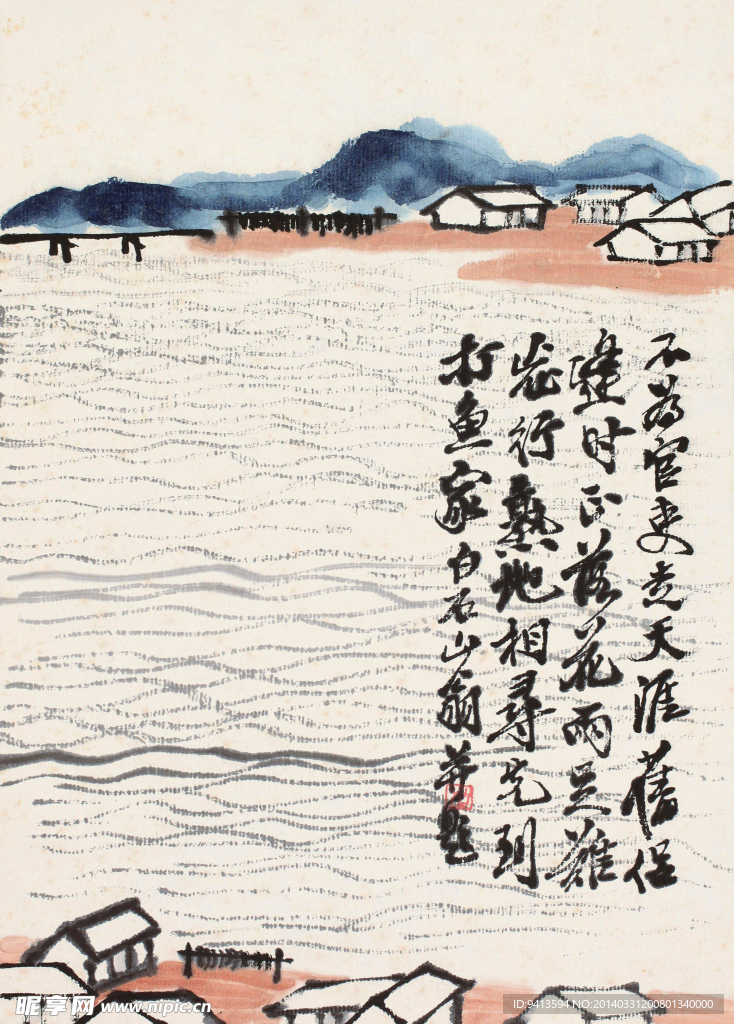 不為官吏走天涯舊侶
逢时正落花兩足雖
衰行熟地相尋先到
打鱼家白石山翁并題
昵享网 www.nipic.cn
ID:9413594 NO:20140331200801340000